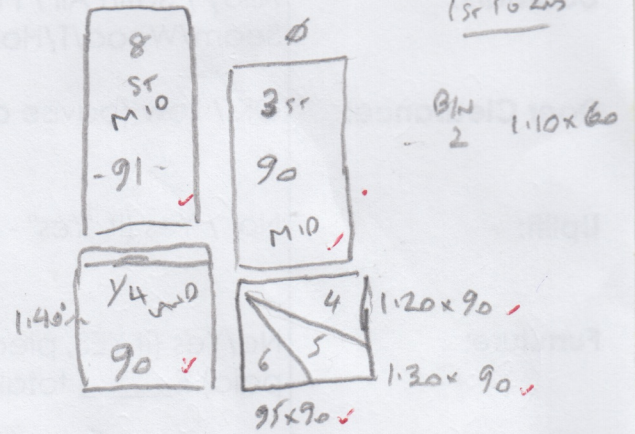 1ST TO 2ND
8
ST
MID
-91-
Ø
3 ST
90
MID
BIN
2
1.10 x 60
1/4 MID
90
1.40
4
5
6
1.20 x 90
1.30 x 90
95 x 90